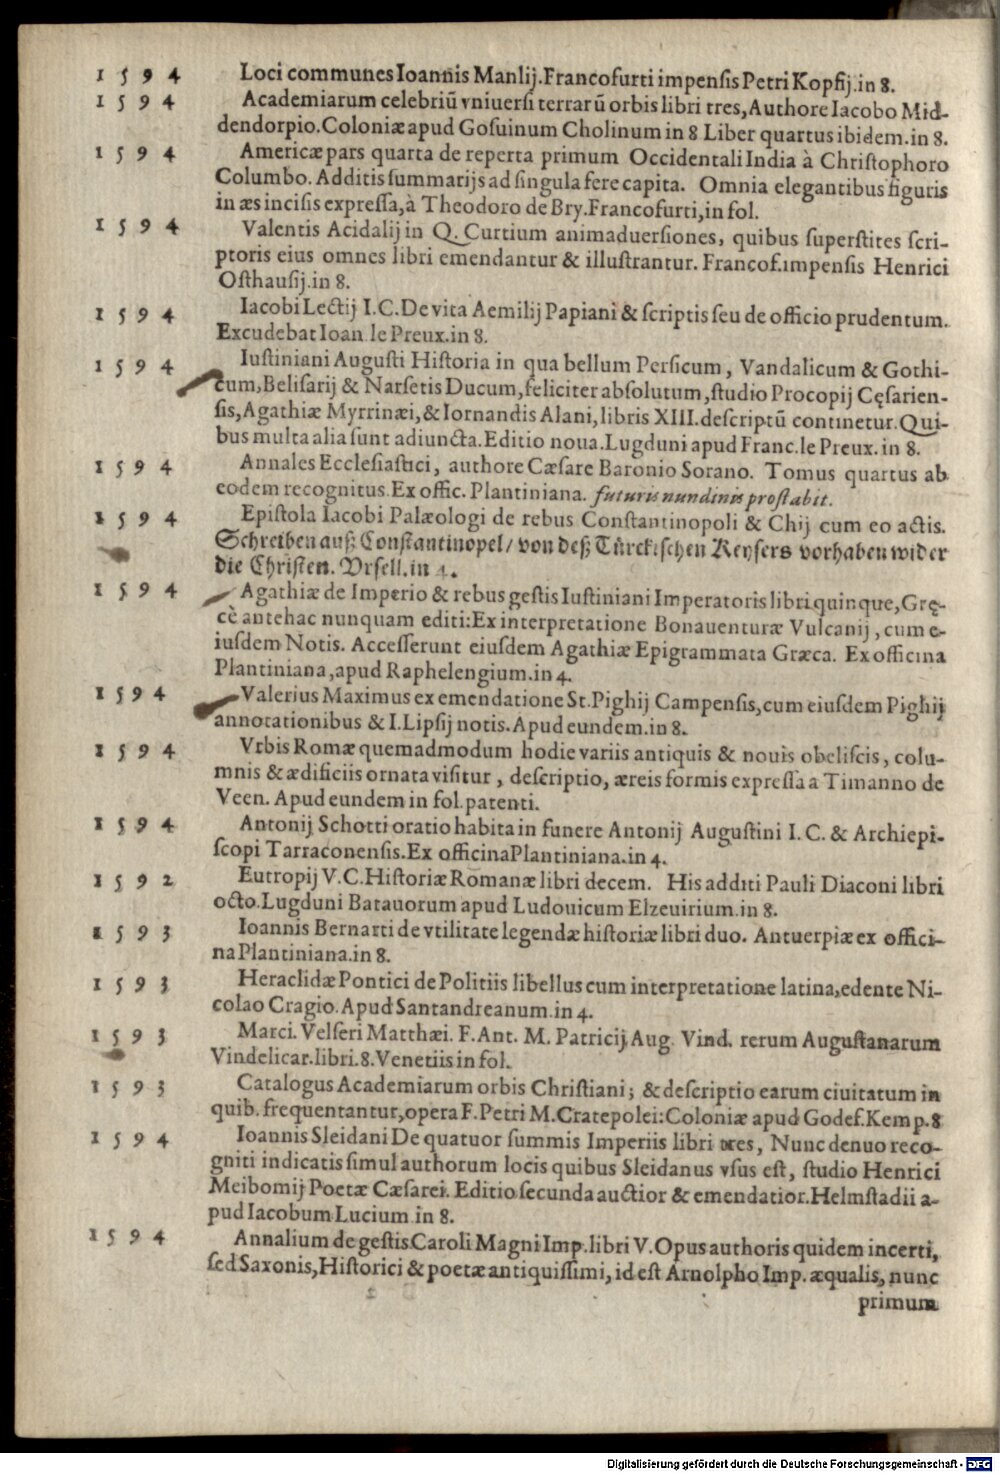 1594 Loci communes Ioannis Manlij. Francofurti impensis Petri Kopfij. in 8.
1594 Academiarum celebriũ vniuersi terrarũ orbis libri tres, Authore Iacobo Mid-
dendorpio. Coloniæ apud Gosuinum Cholinum in 8 Liber quartus ibidem. in 8.
1594 Americæ pars quarta de reperta primum Occidentali India à Christophoro
Columbo. Additis summarijs ad singula fere capita. Omnia elegantibus figuris
in æs incisis expressa, à Theodoro de Bry. Francofurti, in fol.
1594 Valentis Acidalij in Q. Curtium animaduersiones, quibus superstites scri-
ptoris eius omnes libri emendantur & illustrantur. Francof. impensis Henrici
Osthausij. in 8.
1594 Iacobi Lectij I. C. De vita Aemilij Papiani & scriptis seu de officio prudentum.
Excudebat Ioan. le Preux. in 8.
1594 Iustiniani Augusti Historia in qua bellum Persicum, Vandalicum & Gothi-
cum, Belisarij & Narsetis Ducum, feliciter absolutum, studio Procopij Cęsarien-
sis, Agathiæ Myrrinæi, & Iornandis Alani, libris XIII. descriptũ continetur. Qui-
bus multa alia sunt adiuncta. Editio noua. Lugduni apud Franc. le Preux. in 8.
1594 Annales Ecclesiastici, authore Cæsare Baronio Sorano. Tomus quartus ab
eodem recognitus. Ex offic. Plantiniana. futuris nundinis prostabit.
1594 Epistola Iacobi Palæologi de rebus Constantinopoli & Chij cum eo actis.
Schreiben auß Constantinopel/ von deß Türckischen Keysers vorhaben wider
die Christen. Vrsell. in 4.
1594 Agathiæ de Imperio & rebus gestis Iustiniani Imperatoris libri quinque, Grę-
cè antehac nunquam editi: Ex interpretatione Bonauenturæ Vulcanij, cum e-
iusdem Notis. Accesserunt eiusdem Agathiæ Epigrammata Græca. Ex officina
Plantiniana, apud Raphelengium. in 4.
1594 Valerius Maximus ex emendatione St. Pighij Campensis, cum eiusdem Pighij
annotationibus & I. Lipsij notis. Apud eundem. in 8.
1594 Vrbis Romæ quemadmodum hodie variis antiquis & nouis obeliscis, colu-
mnis & ædificiis ornata visitur, descriptio, æreis formis expressa a Timanno de
Veen. Apud eundem in fol. patenti.
1594 Antonij Schotti oratio habita in funere Antonij Augustini I. C. & Archiepi-
scopi Tarraconensis. Ex officina Plantiniana. in 4.
1592 Eutropij V. C. Historiæ Romanæ libri decem. His additi Pauli Diaconi libri
octo. Lugduni Batauorum apud Ludouicum Elzeuirium. in 8.
1593 Ioannis Bernarti de vtilitate legendæ historiæ libri duo. Antuerpiæ ex offici-
na Plantiniana. in 8.
1593 Heraclidæ Pontici de Politiis libellus cum interpretatione latina, edente Ni-
colao Cragio. Apud Santandreanum. in 4.
1593 Marci. Velseri Matthæi. F. Ant. M. Patricij Aug. Vind. rerum Augustanarum
Vindelicar. libri. 8. Venetiis in fol.
1593 Catalogus Academiarum orbis Christiani; & descriptio earum ciuitatum in
quib. frequentantur, opera F. Petri M. Cratepolei: Coloniæ apud Godef. Kemp. 8
1594 Ioannis Sleidani De quatuor summis Imperiis libri tres, Nunc denuo reco-
gniti indicatis simul authorum locis quibus Sleidanus vsus est, studio Henrici
Meibomij Poetæ Cæsarei. Editio secunda auctior & emendatior. Helmstadii a-
pud Iacobum Lucium in 8.
1594 Annalium de gestis Caroli Magni Imp. libri V. Opus authoris quidem incerti,
sed Saxonis, Historici & poetæ antiquissimi, id est Arnolpho Imp. æqualis, nunc
primum
Digitalisierung gefördert durch die Deutsche Forschungsgemeinschaft - DFG